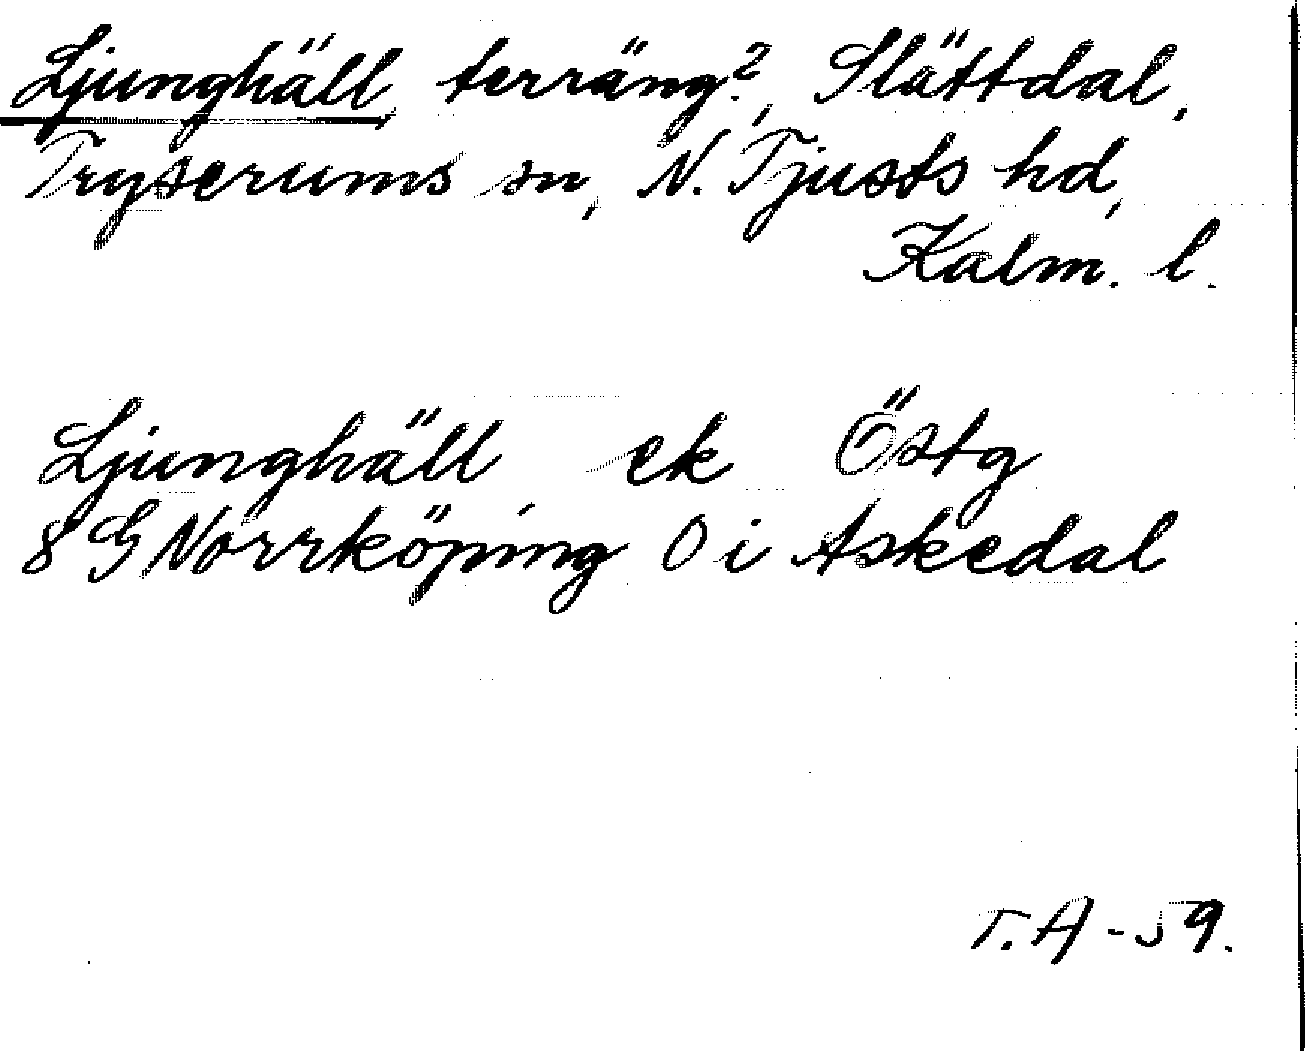 Ljunghäll, terräng?, Slättdal,
Tryserums sn, N. Tjusts hd,
Kalm. l.
Ljunghäll ek Östg
8 G Norrköping O i Askedal
T.A -59.